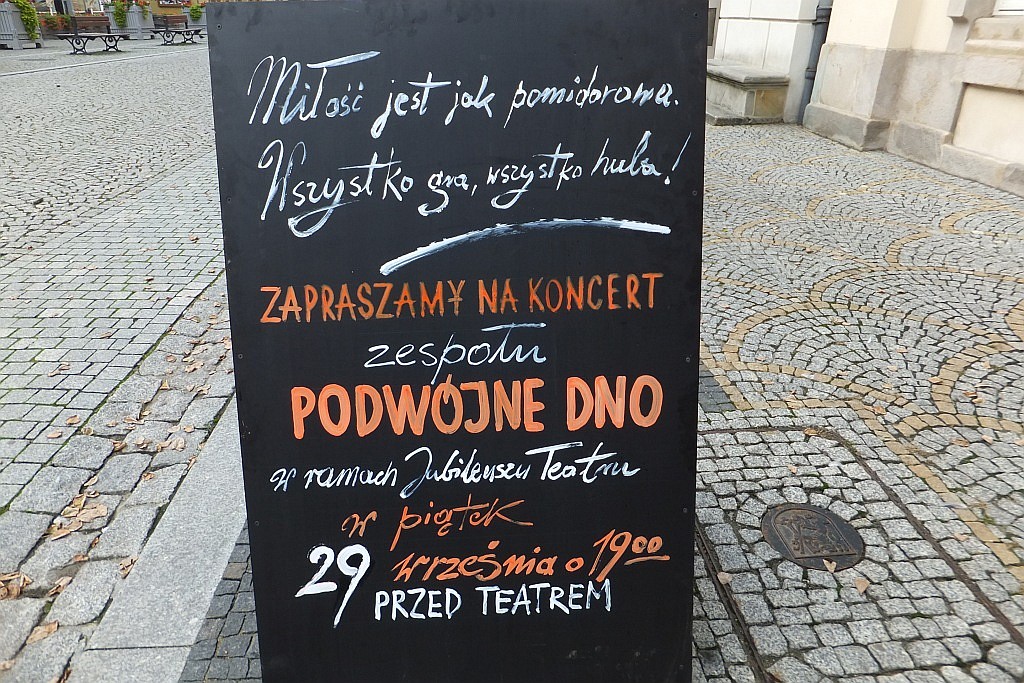 Miłość jest jak pomidorowa.
Wszystko gra, wszystko hula!
ZAPRASZAMY NA KONCERT
zespołu
PODWÓJNE DNO
w ramach Jubileuszu Teatru
w piątek
29 września o 19⁰⁰
PRZED TEATREM